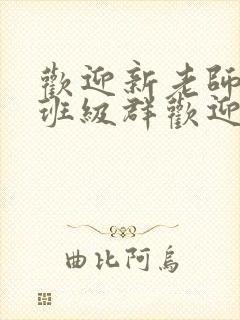 歡迎新老師
班級群歡迎
曲比阿烏